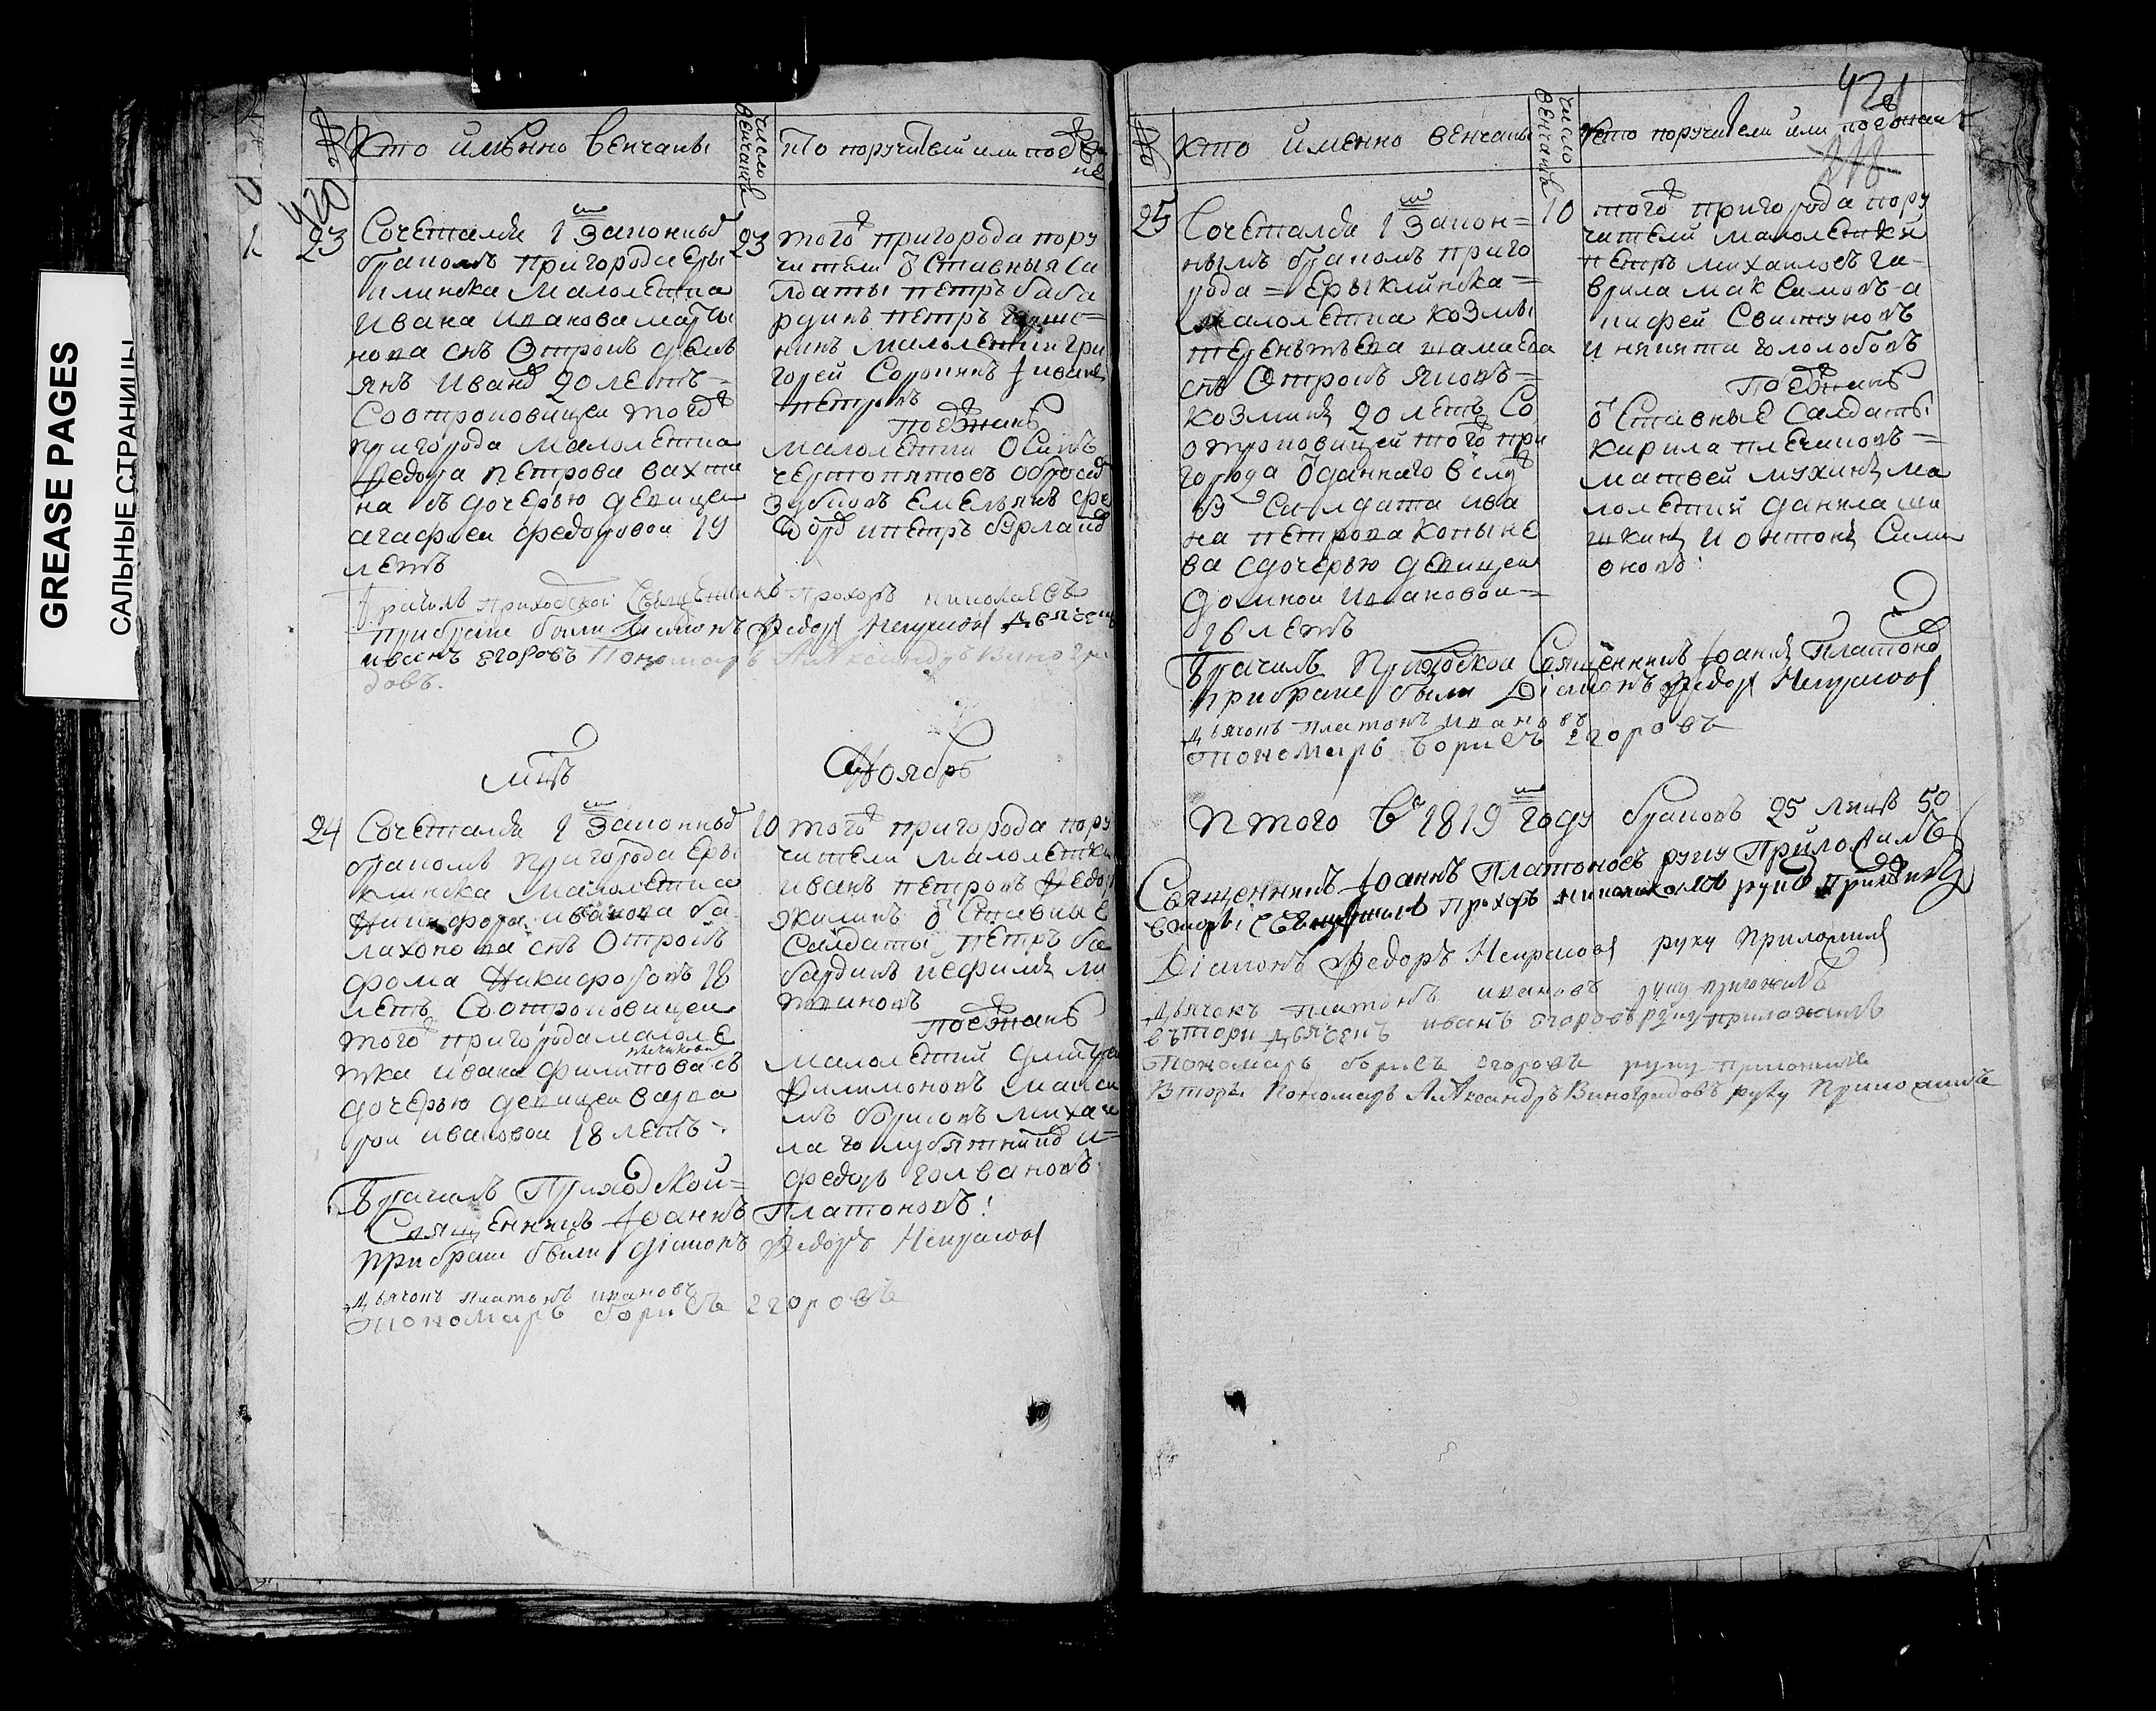 GREASE PAGES
САЛЬНЫЕ СТРАНИЦЫ
420
№
Кто имѣнно венчаны
число венчанiѣ
Кто поручители или поезжане
23
Сочеталися 1 м Законным
браком пригорода Еры
клинска малолетка
Ивана Иванова марты
нова снъ Отрокъ демь
янъ Иванов 20 летъ
Соотроковицеи того
пригорода малолетка
Федора Петрова вахти
на съ дочерью девицеи
агафиеи федоровои 19
летъ
23
того пригорода пору
чители Отставныя са
лдаты петръ баба
рдинъ петръ
нинъ малолетки гри
горей Сорокинъ и иванъ
петровъ
Поезжанъ
малолетки Осипъ
зубковъ Емельянъ
и петръ бурлаков
Брачилъ приходской Священникъ Прохоръ николаевъ
Прибраке были Дiаконъ Федоръ Некрасовъ Дьячекъ
иванъ егоровъ Пономарь Александръ Виногра
довъ.
Мцъ Ноябрь
24
Сочеталися 1 м Законным
браком пригорода Еры
клинска малолетка
Никифора иванова ба
лахонова снъ Отрокъ
фома Никифоровъ 18
летъ Соотроковицеи
того пригорода малоле
тка ивана филипова съ
дочерью девицеи варва
рои ивановои 18 летъ
10
того пригорода пору
чители малолетки
иванъ петровъ Федоръ
жилинъ Отставные
Салдаты петръ ба
бардинъ и ефимъ ли
твиновъ
поезжанъ
малолетки дмитрей
Филимоновъ макси
мъ борисовъ михаи
ла голубятников и
федоръ головановъ
Брачилъ Приходской
Священникъ Иоаннъ Платоновъ!
Прибраке были дiаконъ Федоръ Некрасовъ
Дьячокъ платонъ ивановъ
Пономарь борисъ егоровъ
421
№
Кто именно венчаны
число венчанiѣ
Кто поручители или поезжанѣ
25
Сочеталися 1 м Закон=
нымъ бракомъ приго
рода = Ерыклинска =
малолетка козмы
терентьева шамаева
снъ Отрокъ яковъ
козминъ 20 летъ Со
отроковицей того при
города Отданнаго в служ
бу Салдата ива
на петрова копыне
ва сдочерью девицеи
домнои ивановои=
16 летъ
10
того пригорода пору
чители малолетки
петръ михаиловъ га-
врила максимовъ а
кифей Свитуновъ
и никита гололобовъ
Поезжанъ
Отставные Салдаты
кирила плечиновъ=
матвей мухинъ ма
лолетки данила ши
шкинъ и онтонъ Сими
оновъ
Брачилъ Приходской Священникъ Иоаннъ Платонов
Прибраке были Дiаконъ Федоръ Некрасовъ
Дьячокъ платонъ ивановъ
Пономарь борисъ егоровъ
Итого в 1819 м году браковъ 25 лицъ 50
Священникъ Иоаннъ Платоновъ руку Приложилъ
вторы Священникъ Прохоръ николаевъ руку приложилъ
Дiаконъ Федоръ Некрасовъ руку приложилъ
Дьячокъ платонъ ивановъ руку приложилъ
вътори дьячекъ иванъ егоровъ руку приложилъ
Пономарь борисъ егоровъ руку приложилъ
Вторы Пономарь Александръ Виноградовъ руку Приложилъ